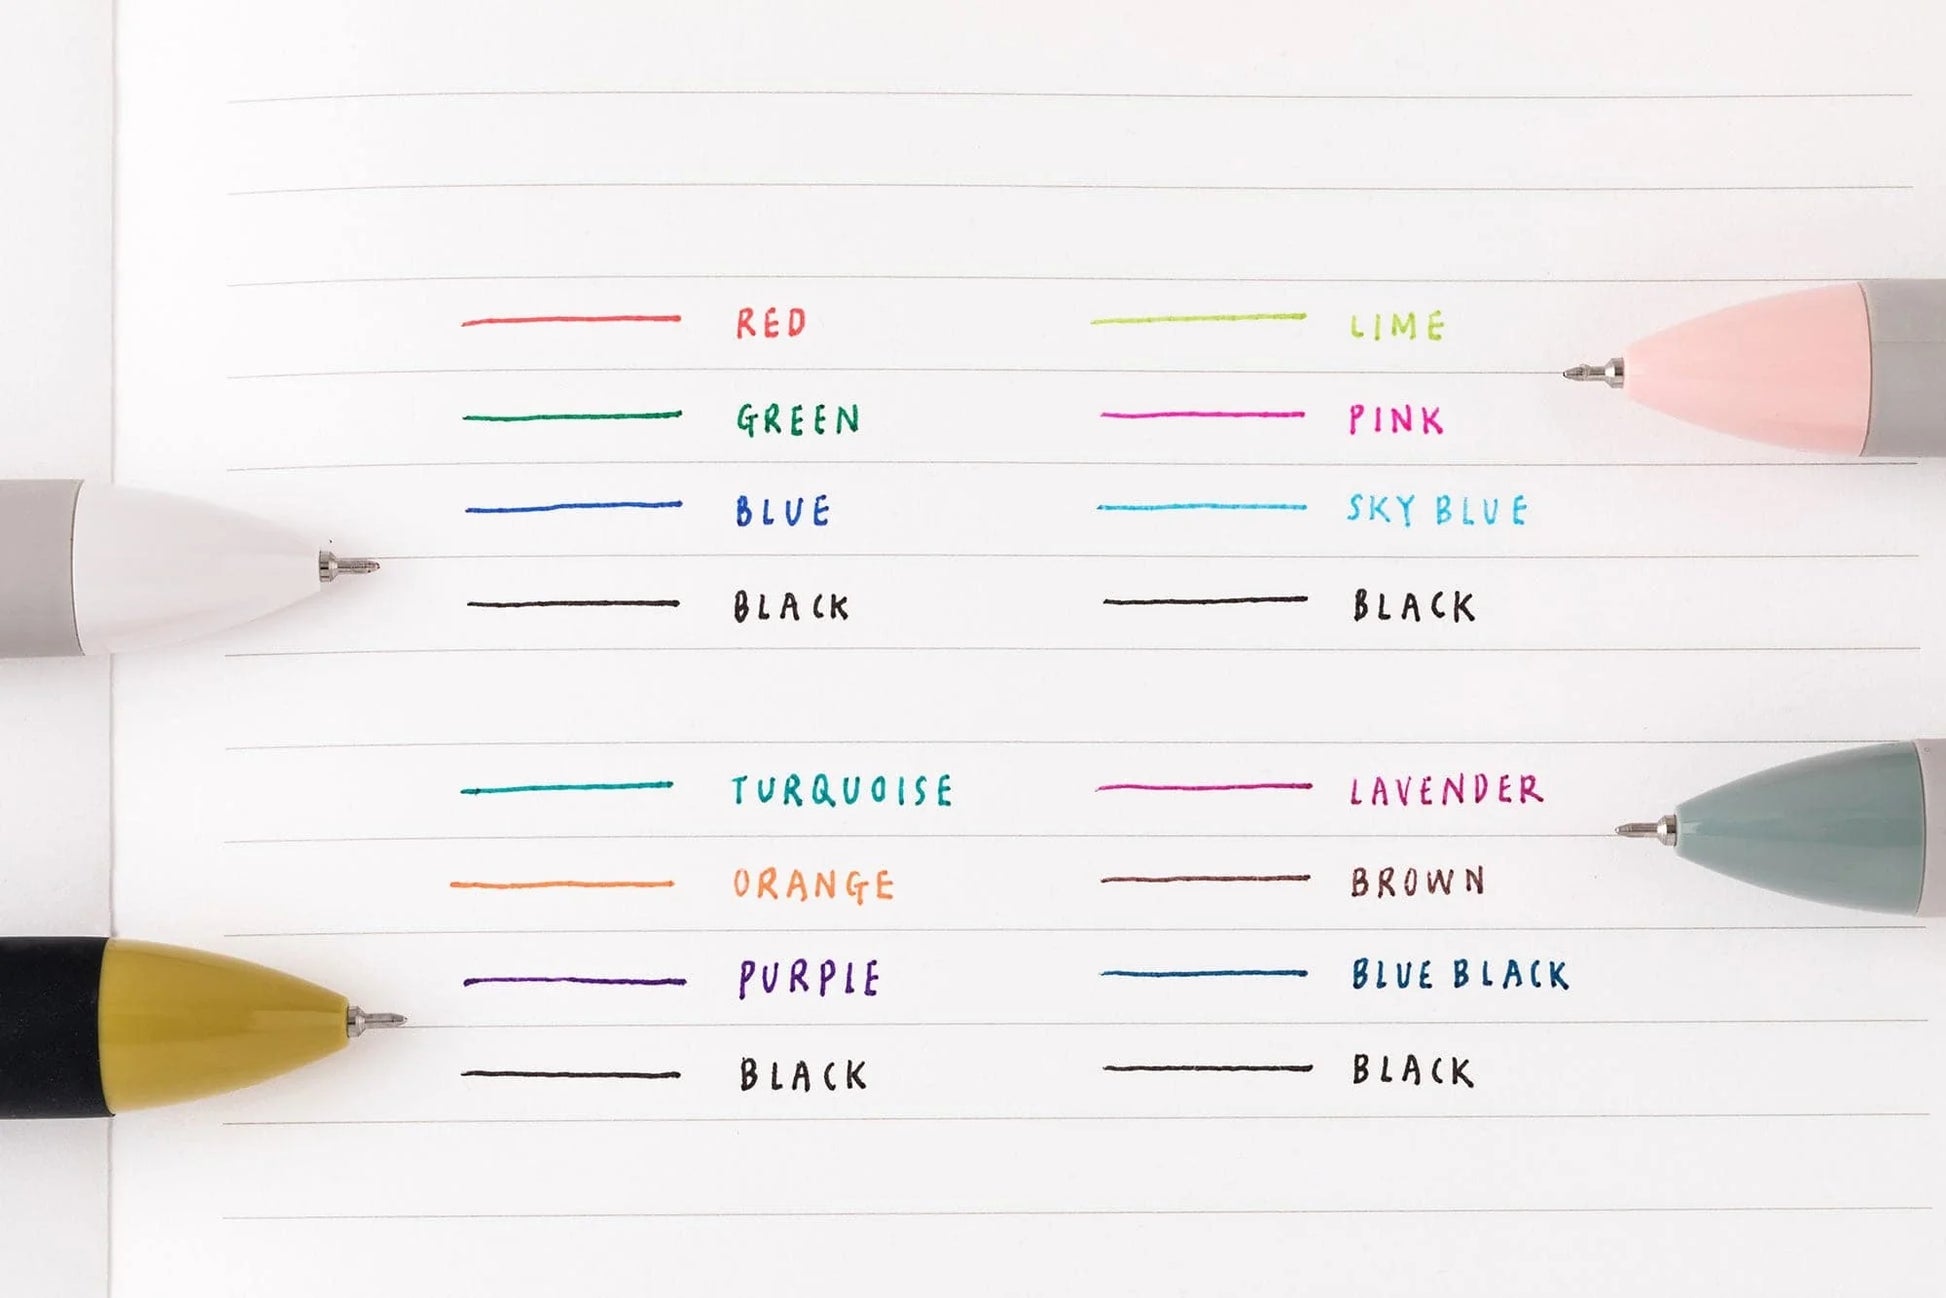 RED
GREEN
BLUE
BLACK
LIME
PINK
SKY BLUE
BLACK
TURQUOISE
ORANGE
PURPLE
BLACK
LAVENDER
BROWN
BLUE BLACK
BLACK